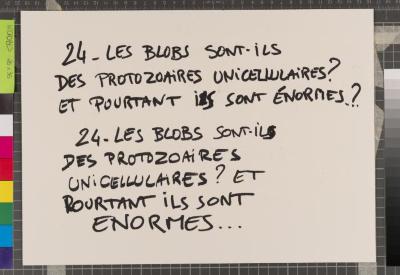 24- LES BLOBS SONT-ILS
DES PROTOZOAIRES UNICELLULAIRES?
ET POURTANT ILS SONT ÉNORMES..?
24-LES BLOBS SONT-ILS
DES PROTOZOAIRES
UNICELLULAIRES? ET
POURTANT ILS SONT
ENORMES...